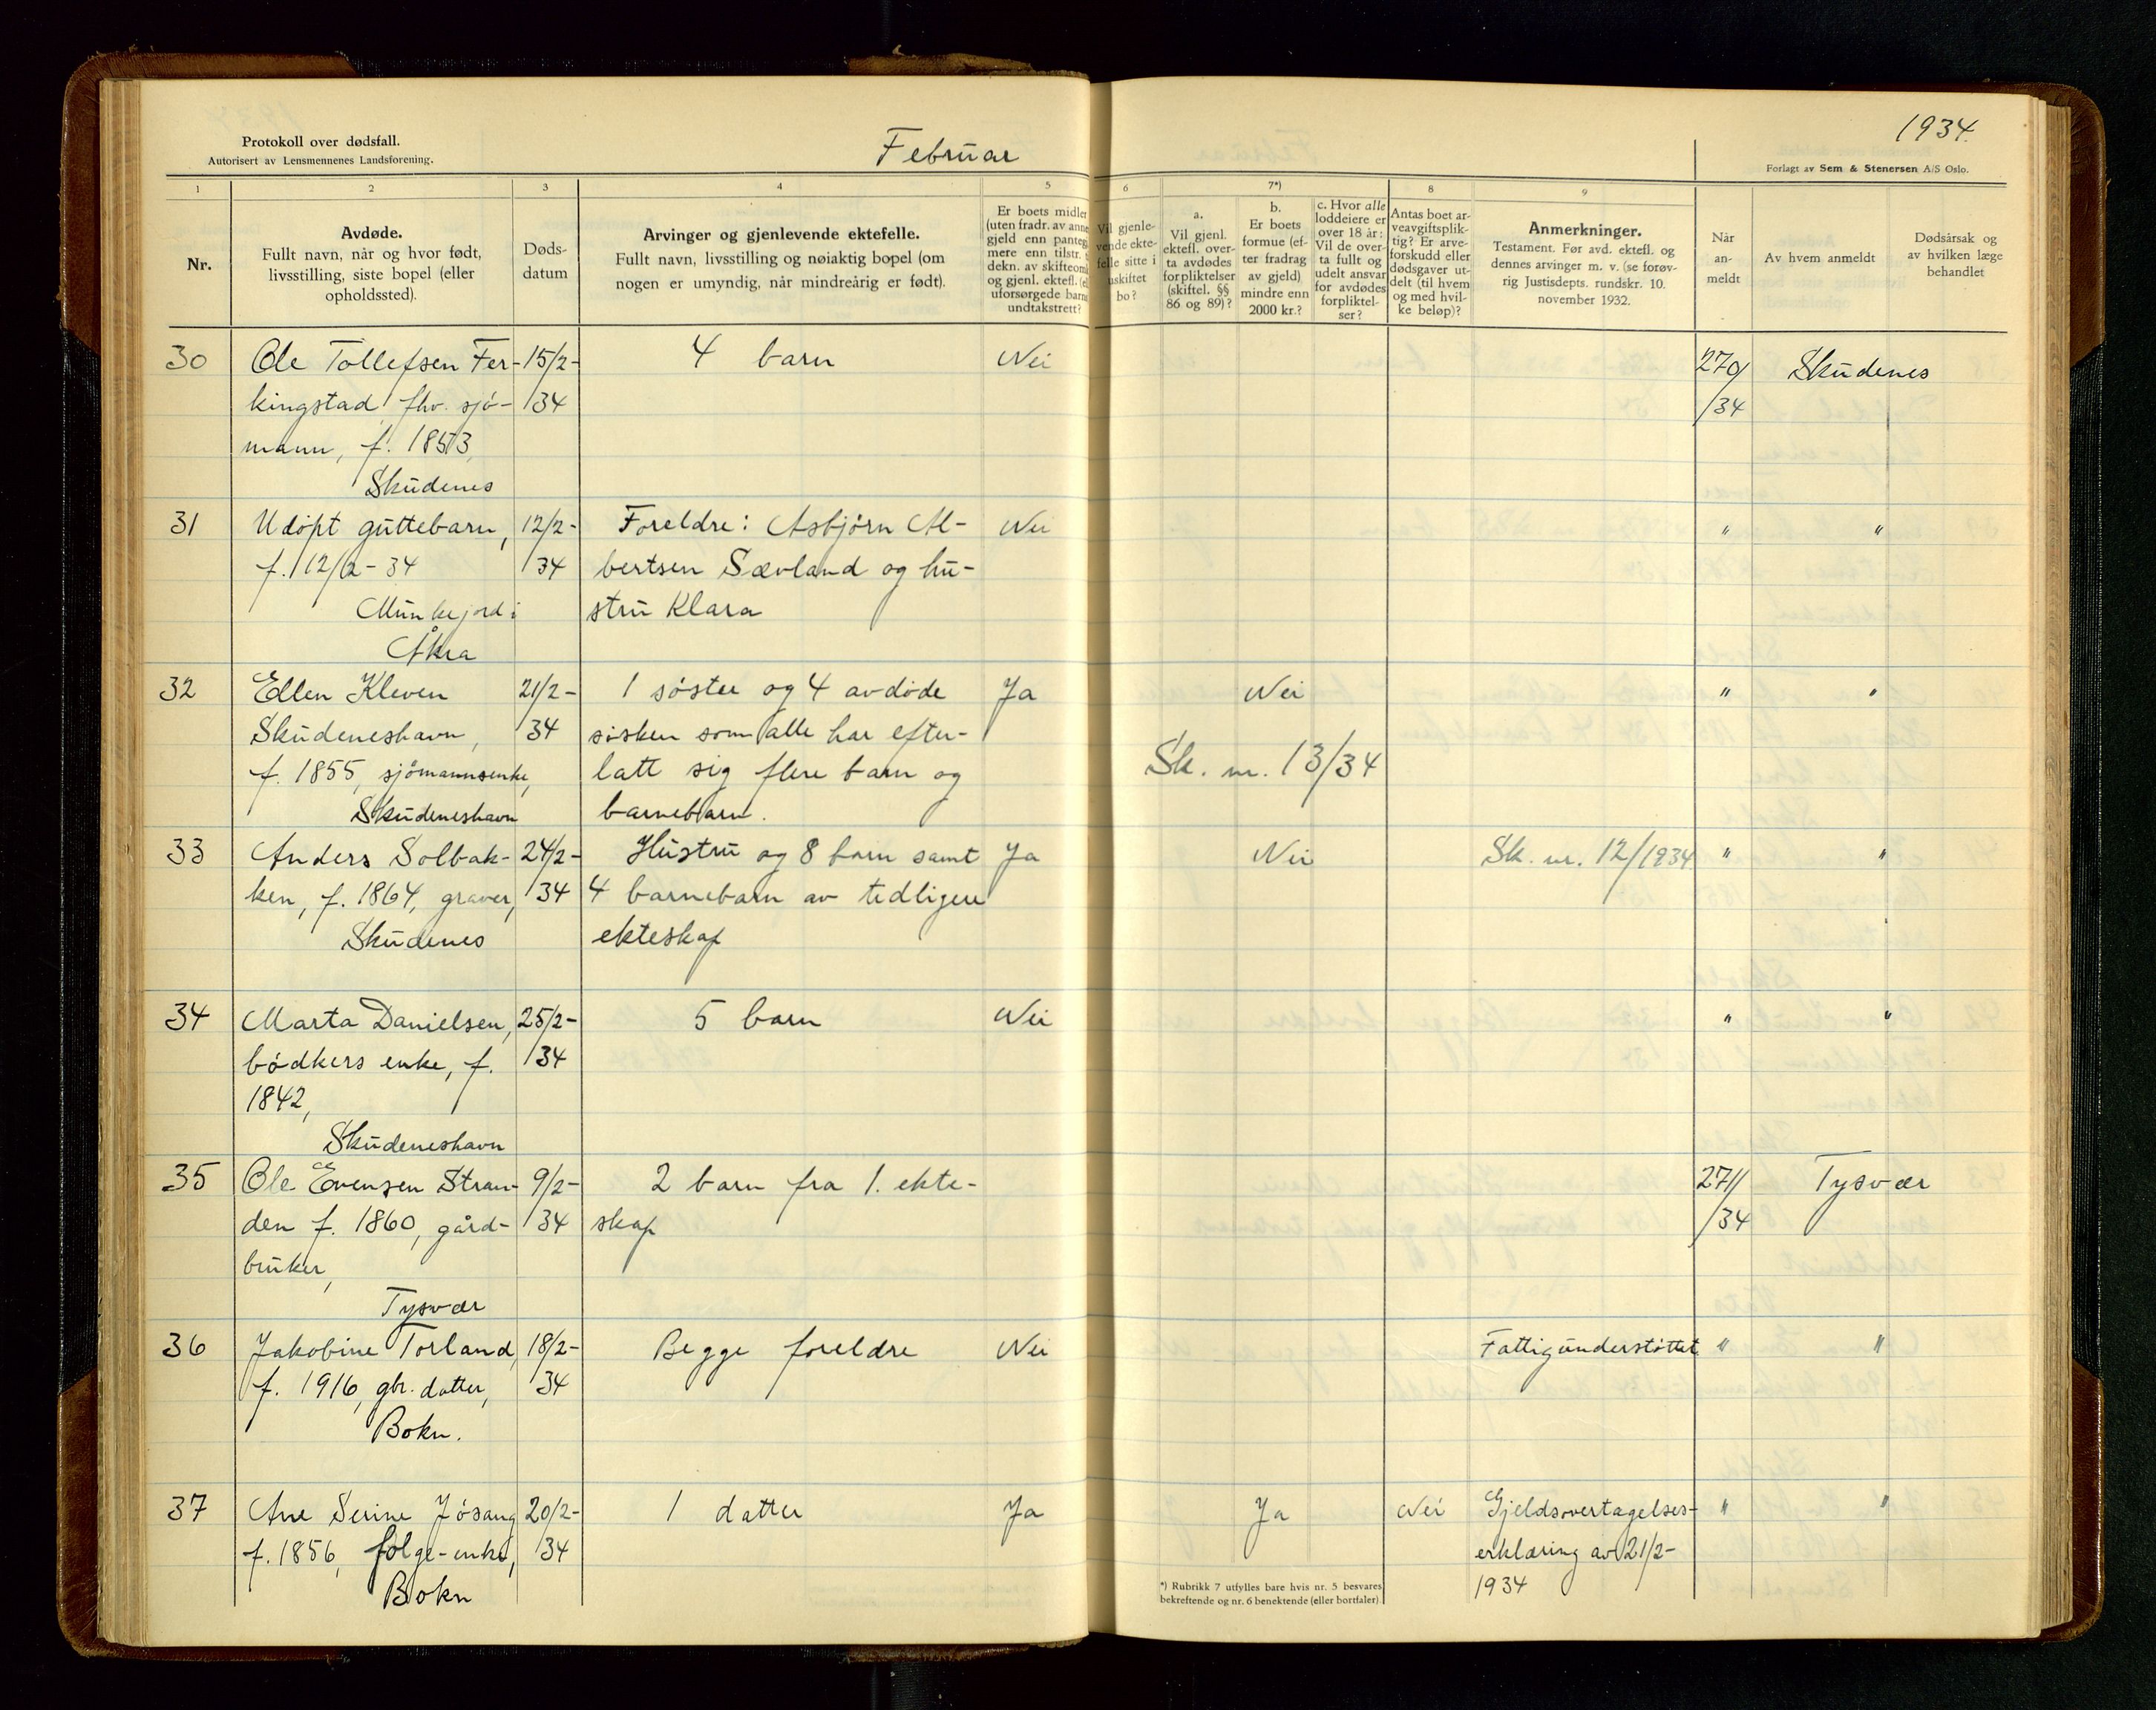 Protokoll over dødsfall.
Autorisert av Lensmennenes Landsforening.
Februar
1934.
Forlagt av Sem & Stenersen A/S Oslo.
1 2 3 4 5 6 7*) 8 9
Nr.
Avdøde.
Fullt navn, når og hvor født,
livsstilling, siste bopel (eller
opholdssted).
Døds-
datum
Arvinger og gjenlevende ektefelle.
Fullt navn, livsstilling og nøiaktig bopel (om
nogen er umyndig, når mindreårig er født).
Er boets midler
(uten fradr. av anne
gjeld enn panteg
mere enn tilstr. t
dekn. av skifteom
og gjenl. ektefl. (el
uforsørgede barns
undtakstrett?
Vil gjenle-
vende ekte-
felle sitte i
uskiftet
bo?
a.
Vil gjenl.
ektefl. over-
ta avdødes
forpliktelser
(skiftel. §§
86 og 89)?
b.
Er boets
formue (ef-
ter fradrag
av gjeld)
mindre enn
2000 kr.?
c. Hvor alle
loddeiere er
over 18 år:
Vil de over-
ta fullt og
udelt ansvar
for avdødes
forpliktel-
ser?
Antas boet ar-
veavgiftsplik-
tig? Er arve-
forskudd eller
dødsgaver ut-
delt (til hvem
og med hvil-
ke beløp)?
Anmerkninger.
Testament. Før avd. ektefl. og
dennes arvinger m. v. (se forøv-
rig Justisdepts. rundskr. 10.
november 1932.
Når
an-
meldt
Av hvem anmeldt
Dødsårsak og
av hvilken læge
behandlet
30 Ole Tollefsen Fer- 15/2- 4 barn Nei 270/ Skudenes
kingstad, fhv. sjø- 34 /34
mann, f. 1853,
Skudenes
31 Udøpt guttebarn, 12/2- Foreldre: Asbjørn Al- Nei " "
f. 12/2-34 34 bertsen Sævland og hu-
Munkejord i stru Klara
Åkra
32 Ellen Kleven 21/2- 1 søster og 4 avdøde Ja Nei " "
Skudeneshavn, 34 søsken som alle har efter-
f. 1855, sjømannsenke, latt sig flere barn og Sk. nr. 13/34
Skudeneshavn barnebarn.
33 Anders Solbak- 24/2- Hustru og 8 barn samt Ja Nei Sk. nr. 12/1934 " "
ken, f. 1864, graver, 34 4 barnebarn av tidligere
Skudenes ekteskap
34 Marta Danielsen, 25/2- 5 barn Nei " "
bødkers enke, f. 34
1842,
Skudeneshavn
35 Ole Evensen Stran- 9/2- 2 barn fra 1. ekte- 271/ Tysvær
den f. 1860, gård- 34 skap /34
bruker,
Tysvær
36 Jakobine Torland, 18/2- Begge foreldre Nei Fattigunderstøttet " "
f. 1916, gbr. datter, 34
Bokn.
37 Ane Serine Jøsang 20/2- 1 datter Ja Ja Nei Gjeldsovertagelses- " "
f. 1856, følge-enke, 34 erklæring av 21/2-
Bokn 1934
*) Rubrikk 7 utfylles bare hvis nr. 5 besvares
bekreftende og nr. 6 benektende (eller bortfaler).